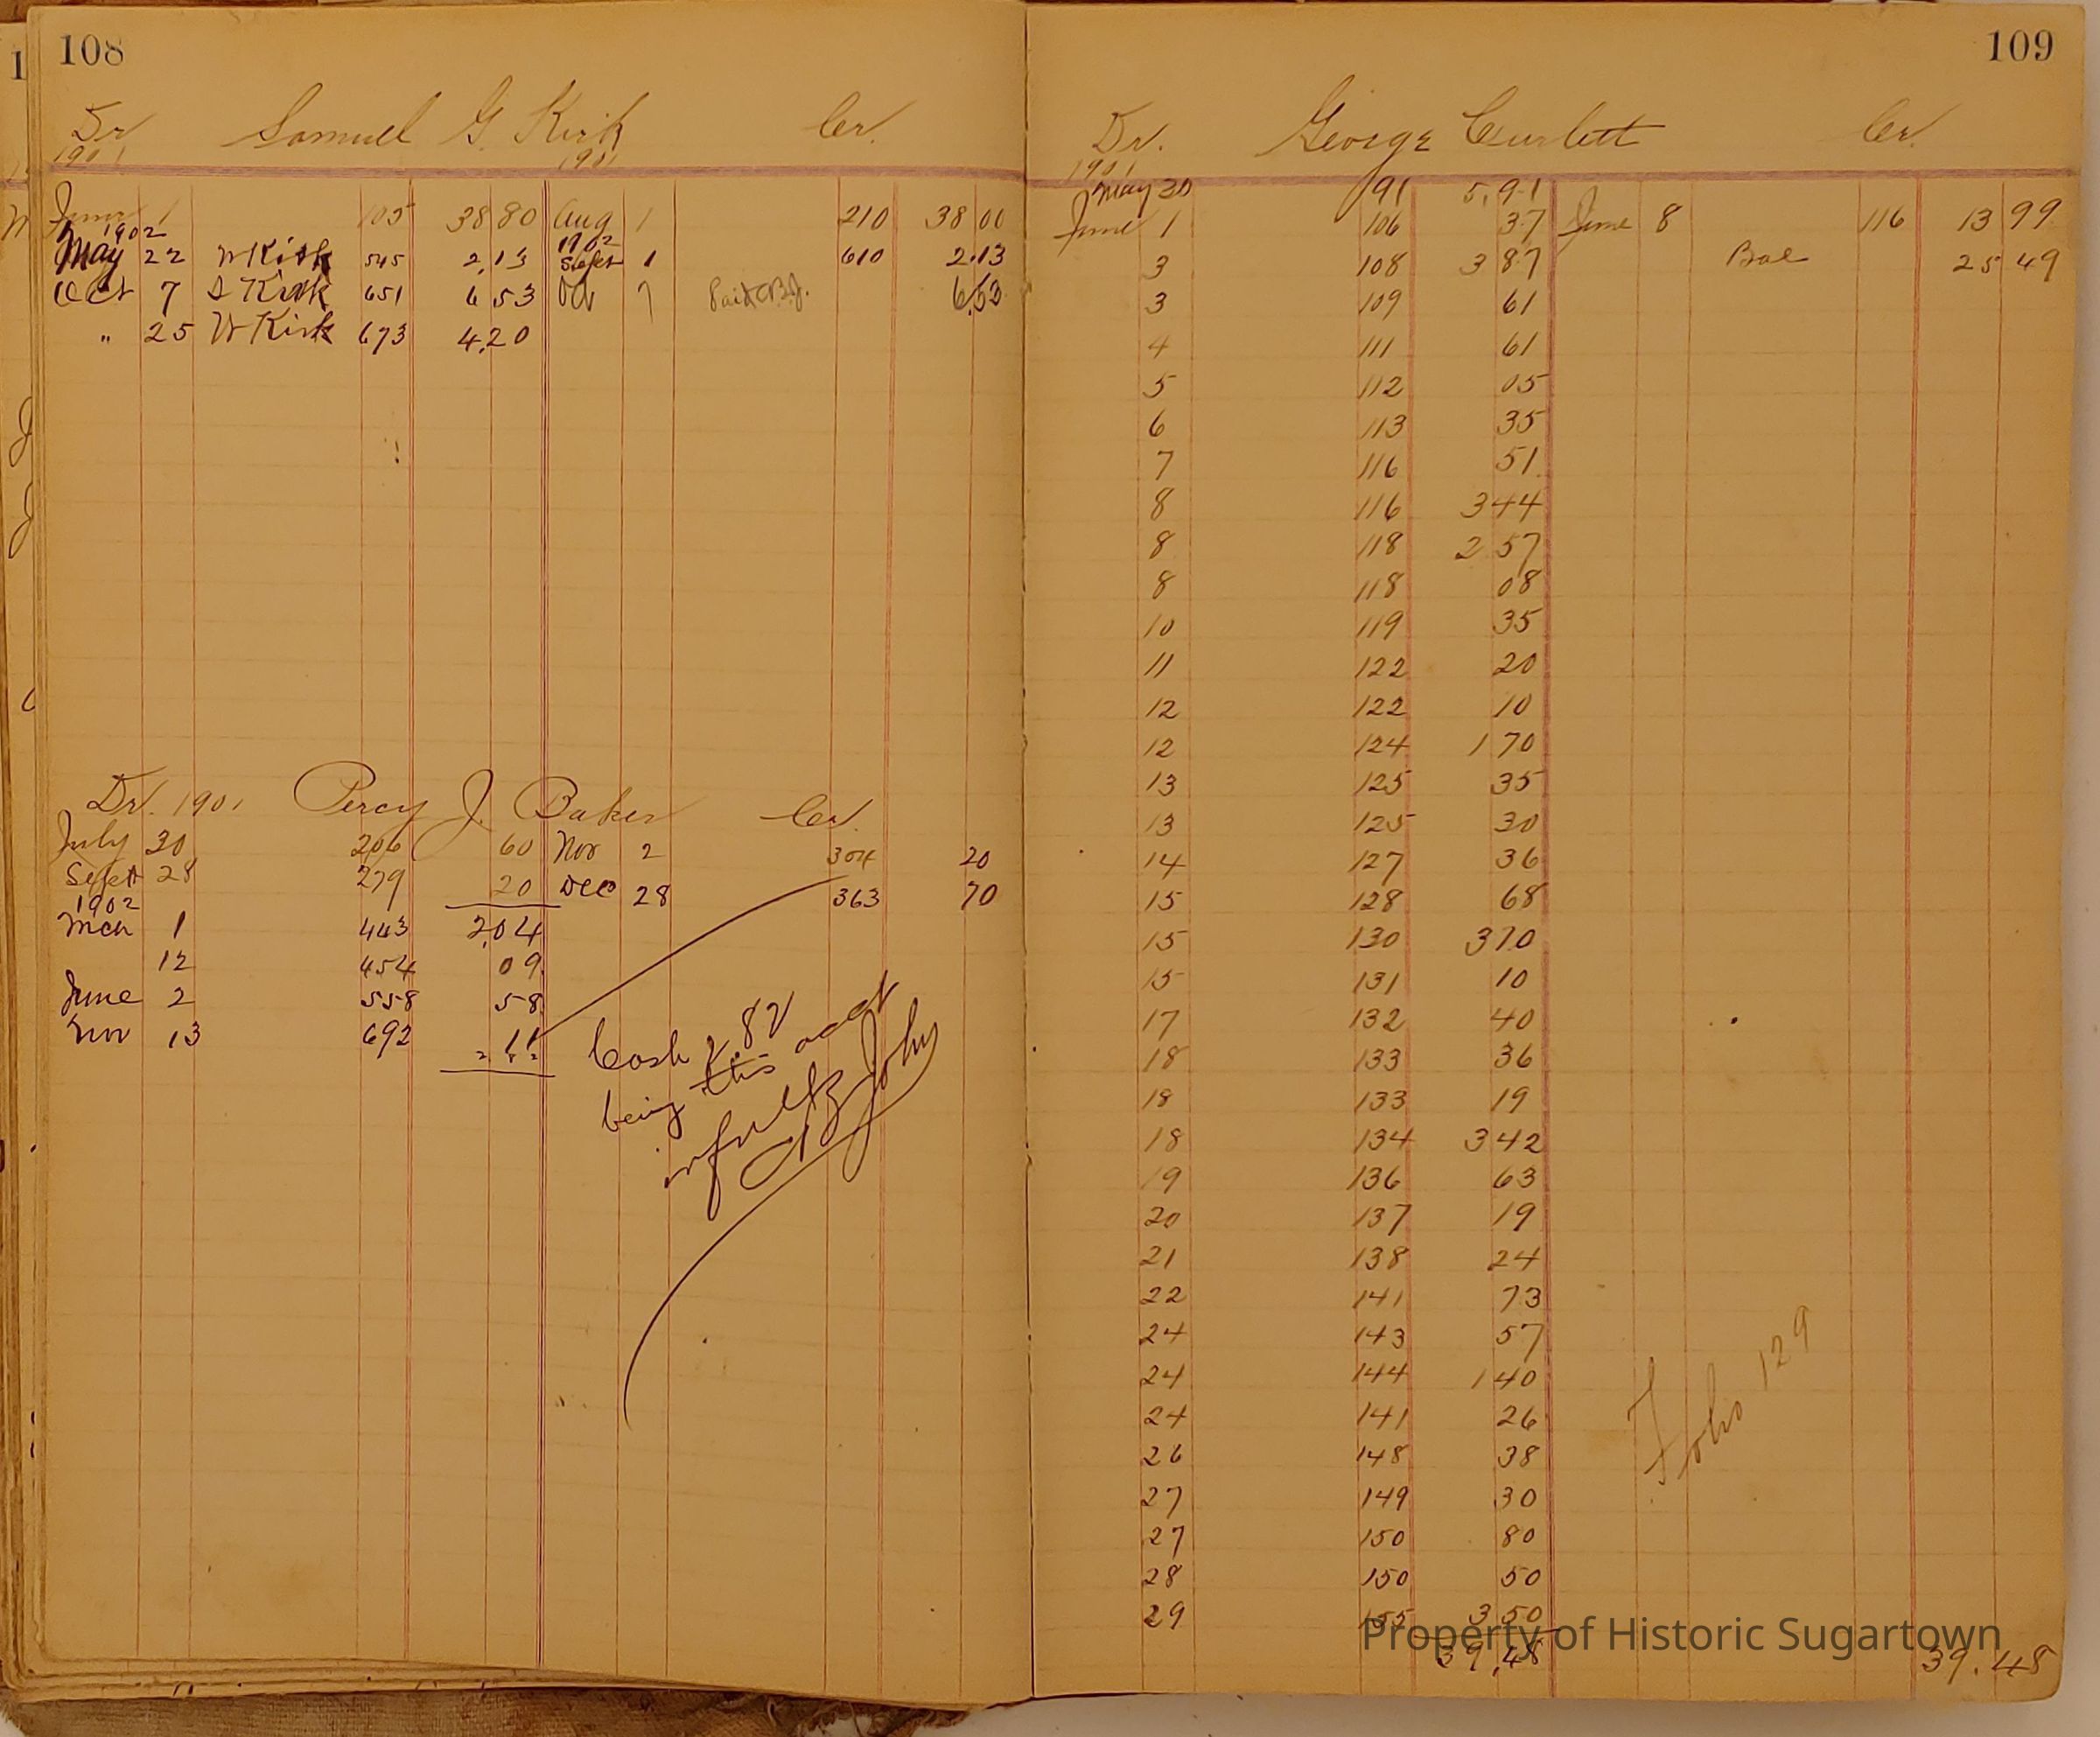 108
Dr Samuel G. Kirk Cr.
1901 1901
June 1 105 38 80 Aug 1 210 38 00
1902 1902
May 22 W Kirk 545 2,13 Sept 1 610 2.13
Oct 7 S Kirk 651 6 53 Oct 7 Paid 6.53
" 25 W Kirk 673 4.20
Dr. 1901 Percy J. Baker Cr.
July 30 206 60 Nov 2 304 20
Sept 28 279 20 Dec 28 363 70
1902
Mch 1 443 2,04
12 454 09
June 2 558 58
Nov 13 692 11
2.82
Cash 2.82
being this acct
in full
John
109
Dr. George Curlett Cr.
1901
May 30 91 5,91
June 1 106 37 June 8 116 13 99
3 108 3 87 Bal 25 49
3 109 61
4 111 61
5 112 05
6 113 35
7 116 51
8 116 3 44
8 118 2 57
8 118 08
10 119 35
11 122 20
12 122 10
12 124 1 70
13 125 35
13 125 30
14 127 36
15 128 68
15 130 3 70
15 131 10
17 132 40
18 133 36
18 133 19
18 134 3 42
19 136 63
20 137 19
21 138 24
22 141 73
24 143 57
24 144 1 40
24 141 26
26 148 38
27 149 30
27 150 80
28 150 50
29 155 3 50
39,48 39.48
Folio 129
Property of Historic Sugartown